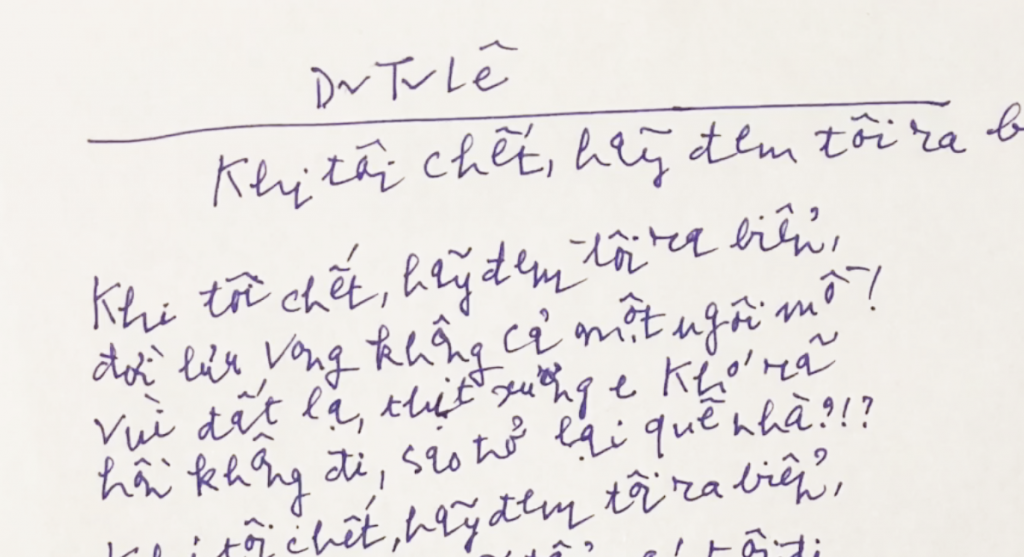 Du Tử Lê
Khi tôi chết, hãy đem tôi ra b
Khi tôi chết, hãy đem tôi ra biển,
đời lưu vong không cả một ngôi mồ!
vùi đất lạ, thịt xương e khó rã
hồn không đi, sao trở lại quê nhà?!?
Khi tôi chết, hãy đem tôi ra biển,